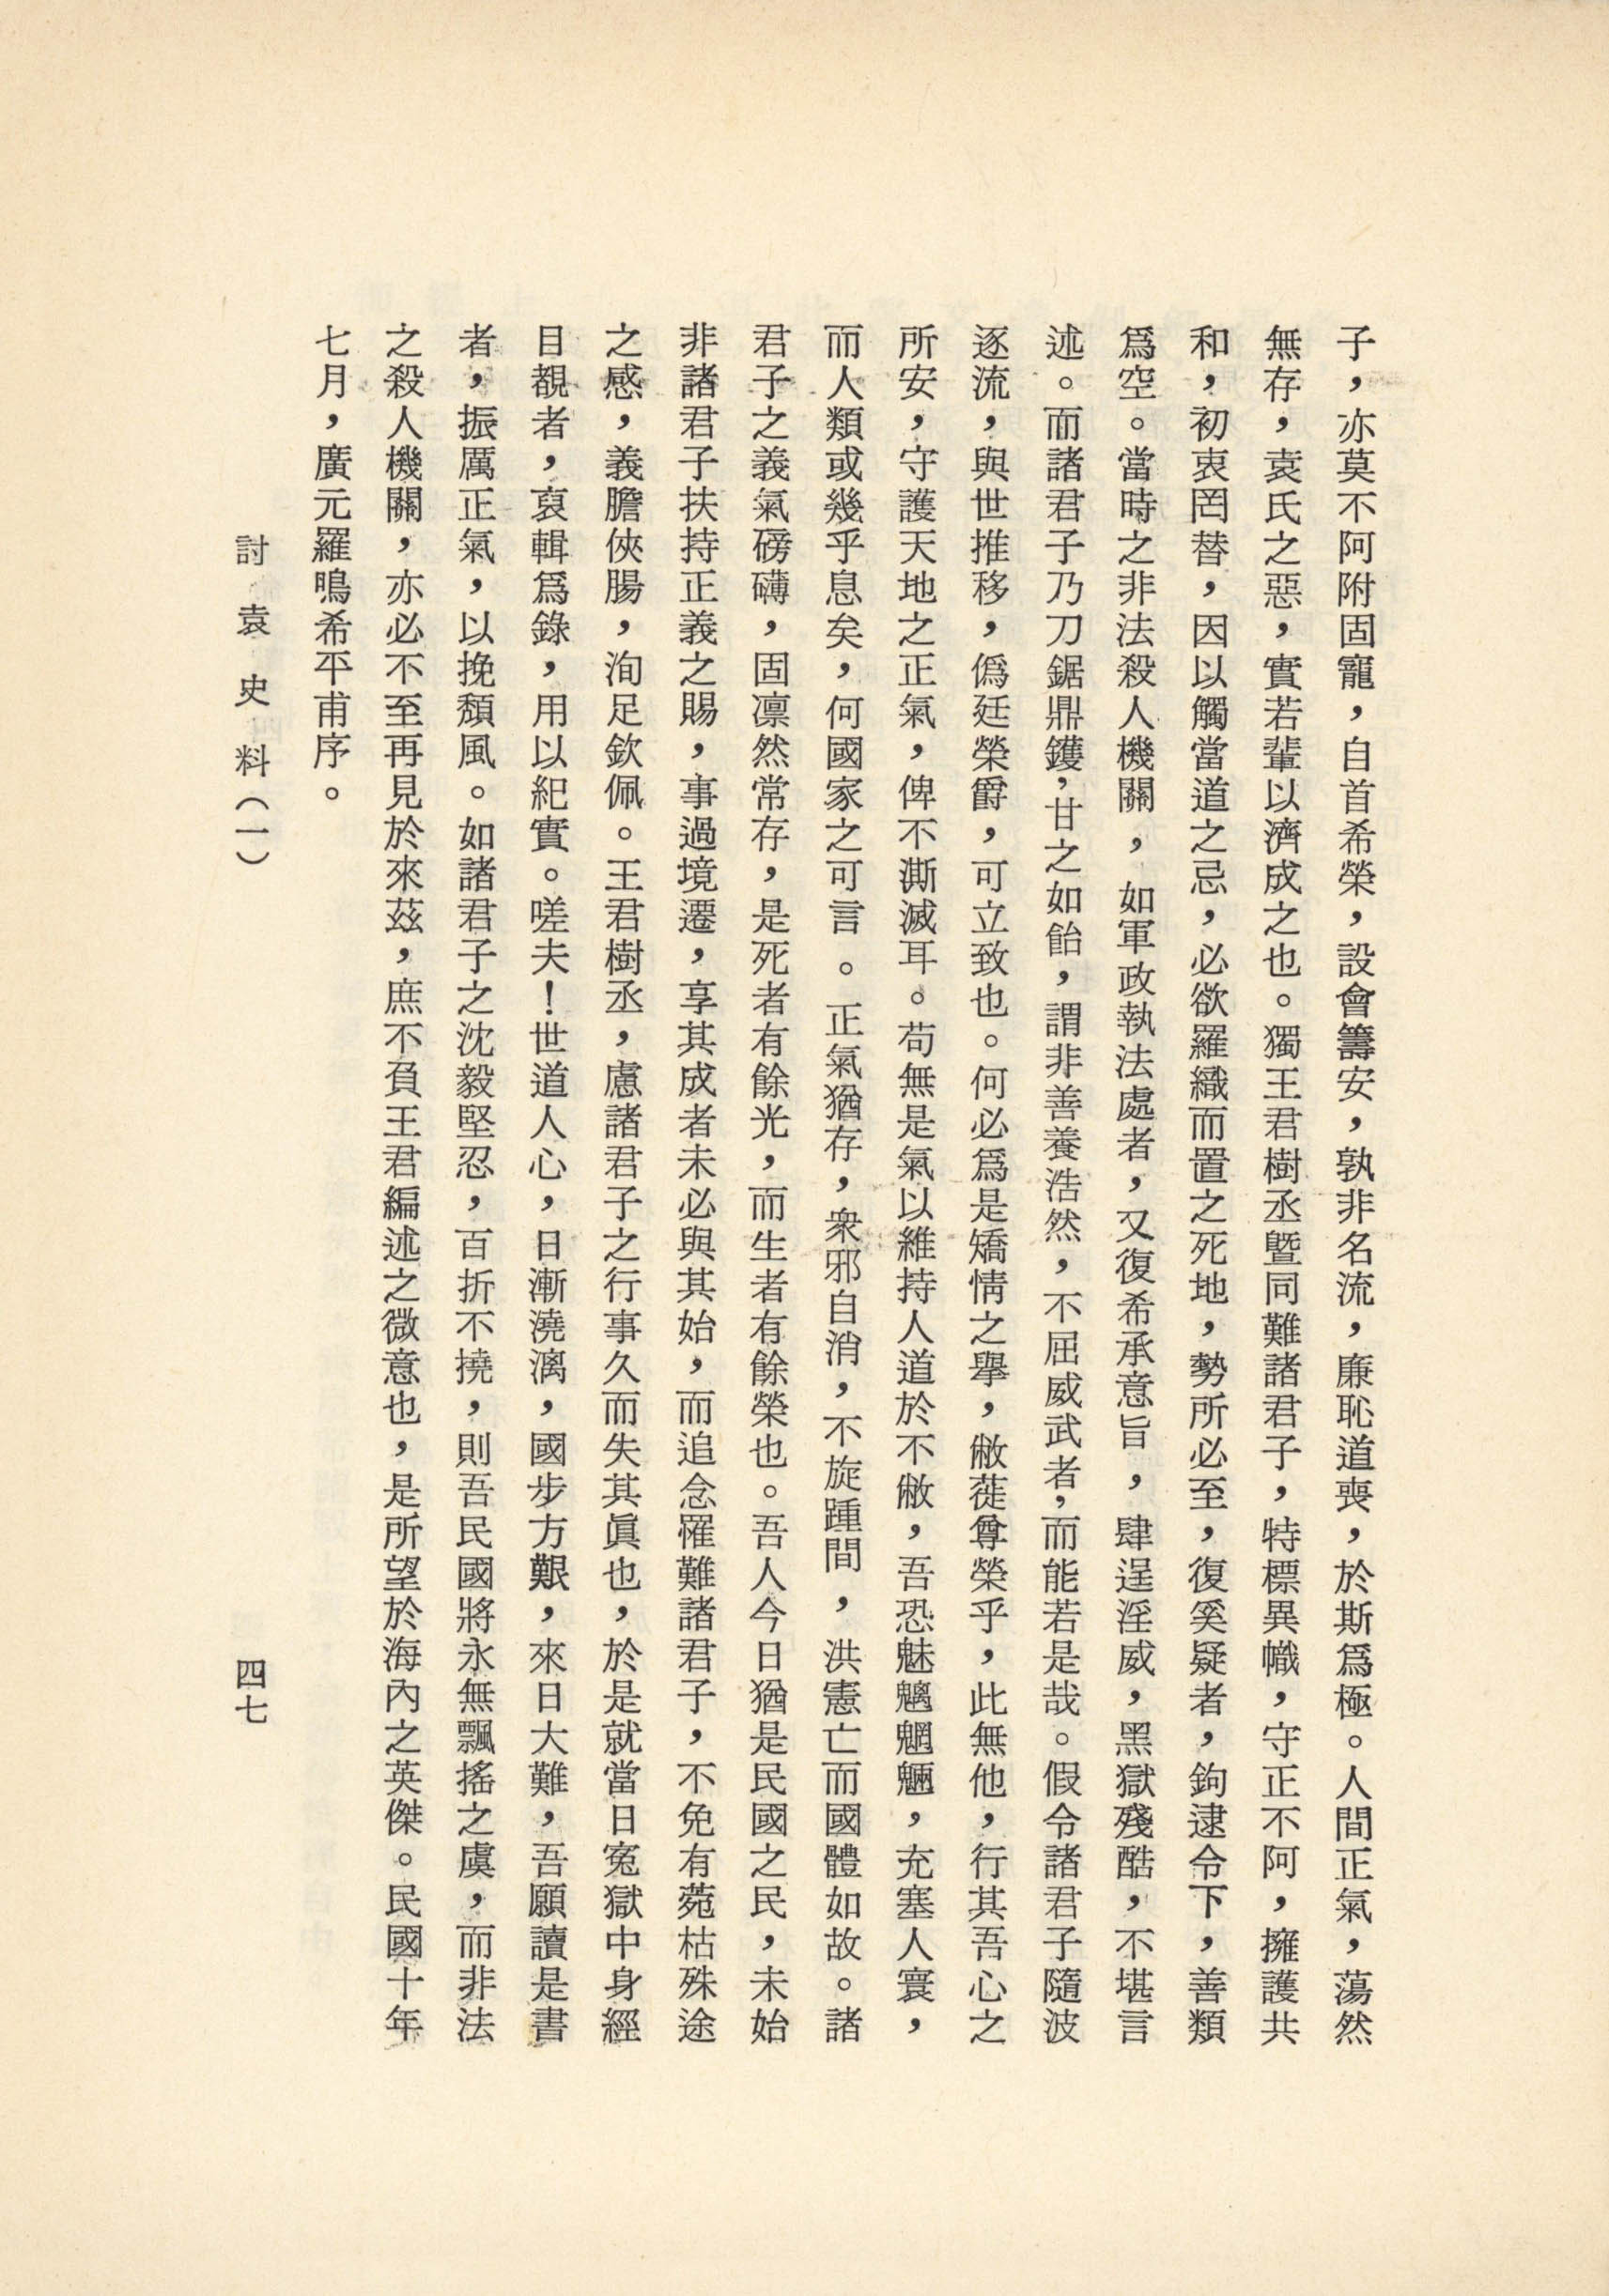 子，亦莫不阿附固寵，自首希榮，設會籌安，孰非名流，廉恥道喪，於斯爲極。人間正氣，蕩然
無存，袁氏之惡，實若輩以濟成之也。獨王君樹丞曁同難諸君子，特標異幟，守正不阿，擁護共
和，初衷罔替，因以觸當道之忌，必欲羅織而置之死地，勢所必至，復奚疑者，鉤逮令下，善類
爲空。當時之非法殺人機關，如軍政執法處者，又復希承意旨，肆逞淫威，黑獄殘酷，不堪言
述。而諸君子乃刀鋸鼎鑊，甘之如飴，謂非善養浩然，不屈威武者，而能若是哉。假令諸君子隨波
逐流，與世推移，僞廷榮爵，可立致也。何必爲是矯情之舉，敝蓰尊榮乎，此無他，行其吾心之
所安，守護天地之正氣，俾不澌滅耳。苟無是氣以維持人道於不敝，吾恐魅魑魍魎，充塞人寰，
而人類或幾乎息矣，何國家之可言。正氣猶存，衆邪自消，不旋踵間，洪憲亡而國體如故。諸
君子之義氣磅礴，固凛然常存，是死者有餘光，而生者有餘榮也。吾人今日猶是民國之民，未始
非諸君子扶持正義之賜，事過境遷，享其成者未必與其始，而追念罹難諸君子，不免有菀枯殊途
之感，義膽俠腸，洵足欽佩。王君樹丞，慮諸君子之行事久而失其眞也，於是就當日寃獄中身經
目覩者，裒輯爲錄，用以紀實。嗟夫！世道人心，日漸澆漓，國步方艱，來日大難，吾願讀是書
者，振厲正氣，以挽頹風。如諸君子之沈毅堅忍，百折不撓，則吾民國將永無飄搖之虞，而非法
之殺人機關，亦必不至再見於來茲，庶不負王君編述之微意也，是所望於海內之英傑。民國十年
七月，廣元羅鳴希平甫序。
討袁史料（一）
四七